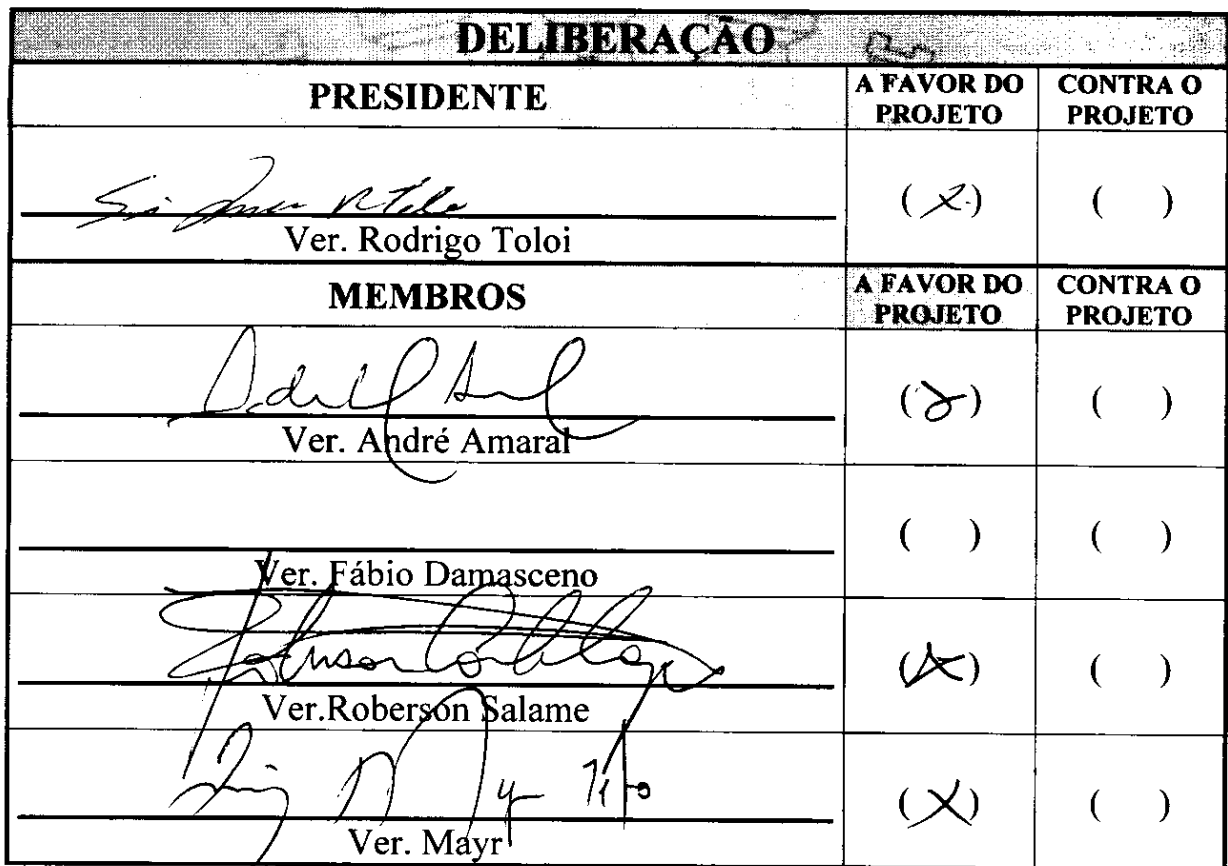 DELIBERAÇÃO
PRESIDENTE
A FAVOR DO PROJETO
CONTRA O PROJETO
( X ) ( )
Ver. Rodrigo Toloi
MEMBROS
A FAVOR DO PROJETO
CONTRA O PROJETO
( X ) ( )
Ver. André Amaral
( ) ( )
Ver. Fábio Damasceno
( X ) ( )
Ver.Roberson Salame
( X ) ( )
Ver. Mayr